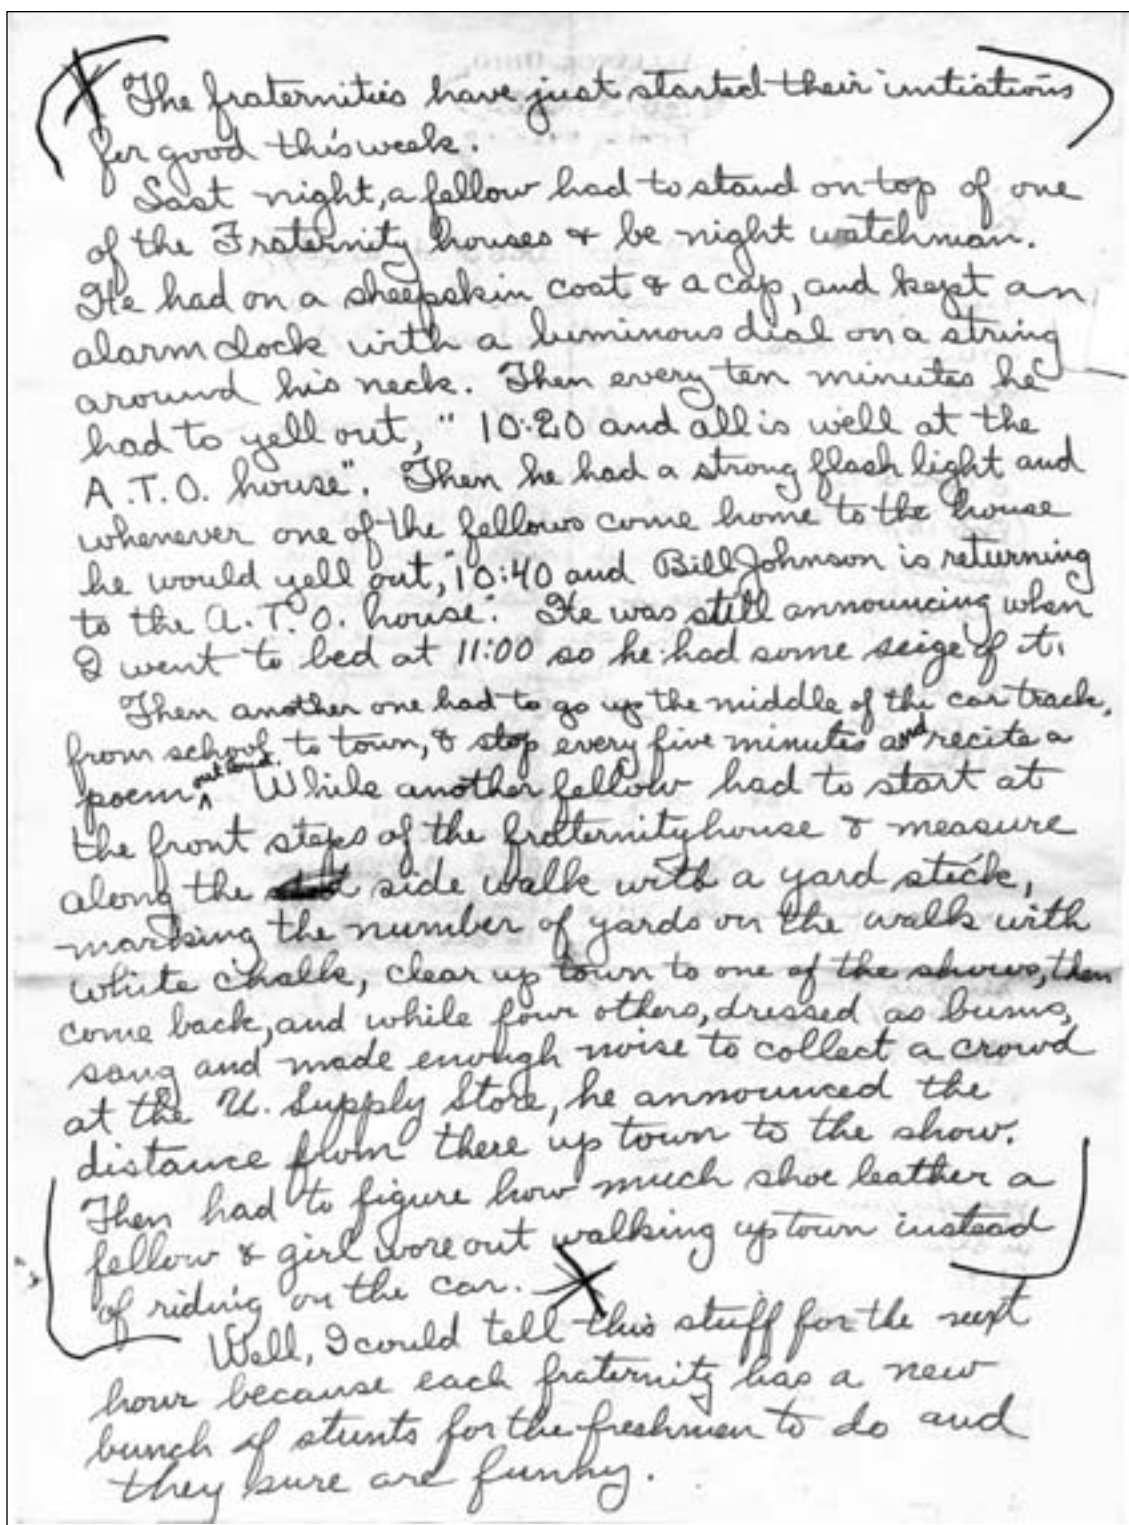 The fraternities have just started their imtiations
for good this week.
Last night, a fellow had to stand on top of one
of the Fraternity houses & be night watchman.
He had on a sheepskin coat & a cap, and kept an
alarm clock with a luminous dial on a string
around his neck. Then every ten minutes he
had to yell out, "10:20 and all is well at the
A.T.O. house". Then he had a strong flash light and
whenever one of the fellows come home to the house
he would yell out, "10:40 and Bill Johnson is returning
to the A.T.O. house". He was still announcing when
I went to bed at 11:00 so he had some seige of it.
Then another one had to go up the middle of the car track,
from school to town, & stop every five minutes and recite a
poem out loud. While another fellow had to start at
the front steps of the fraternity house & measure
along the side walk with a yard stick,
marking the number of yards on the walk with
white chalk, clear up town to one of the shows, then
come back, and while four others, dressed as bums,
sang and made enough noise to collect a crowd
at the U. Supply Store, he announced the
distance from there up town to the show.
Then had to figure how much shoe leather a
fellow & girl wore out walking up town instead
of riding on the car.
Well, I could tell this stuff for the next
hour because each fraternity has a new
bunch of stunts for the freshmen to do and
they sure are funny.